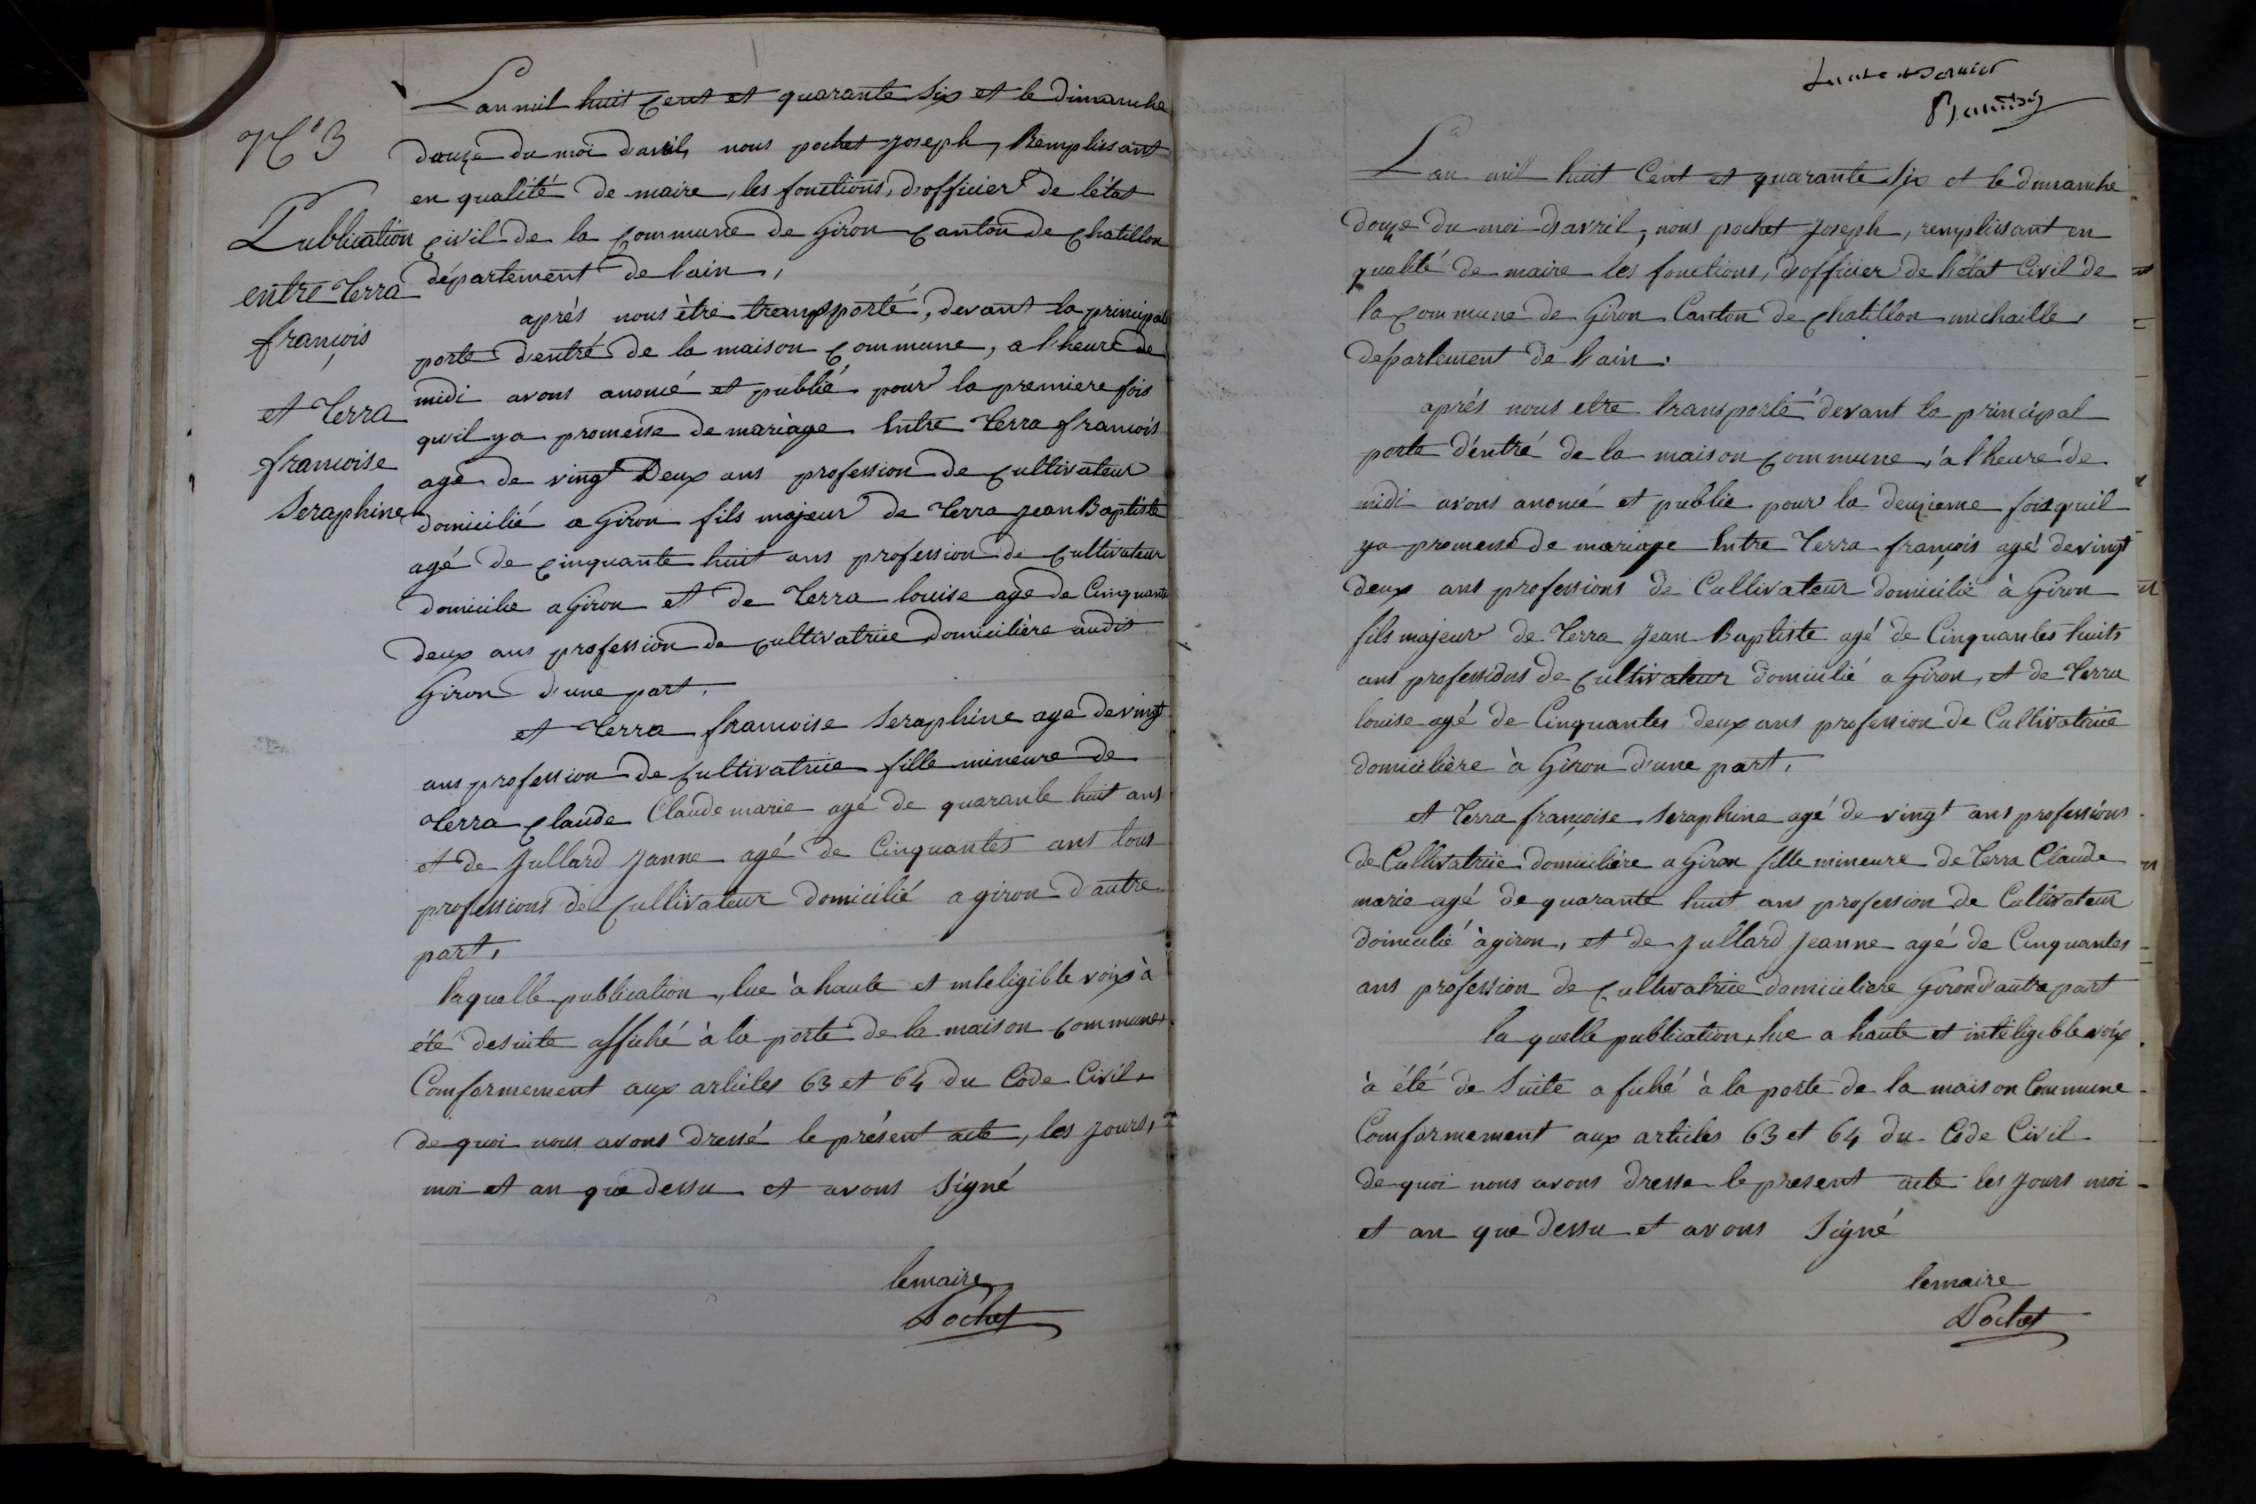 N° 3
Publication
entre Terra
françois
et Terra
francoise
Seraphine
Lan mil huit cent et quarante six et le dimanche
douze du moi davril, nous pochet joseph, Remplissant
en qualité de maire, les fonctions, d'officier de létat
civil de la commune de Giron canton de chatillon
département de l'ain,
aprés nous ètre transporté, devant la principal
porte d'entré de la maison commune, a l'heure de
midi avons anoncé et publié pour la premiere fois
qu'il ya promesse de mariage Entre Terra francois
agé de vingt Deux ans profession de cultivateur
domicilié a Giron fils majeur de Terra jean Baptiste
agé de cinquante huit ans profession de cultivateur
domicilie a Giron et de Terra louise age de Cinquante
deux ans profession de cultivatrice domicilière audit
Giron d'une part,
et Terra francoise Seraphine age de vingt
ans profession de cultivatrice fille mineure de
Terra claude Claude marie agé de quarante huit ans
et de Jullard Janne agé de Cinquantes ans tous
professions de cultivateur domicilié a giron d'autre
part,
laquelle publication, lue à haute et inteligible voix à
été desuite affiché à la porte de la maison commune,
Conformement aux articles 63 et 64 du Code Civil,
de quoi nous avons dressé le présent acte, les jours,
moi et an que dessu et avons Signé
lemaire
Pochet
Lan mil huit Cent et quarante Six et le dimanche
douze du moi d'avril, nous pochet joseph, remplissant en
qualité de maire les fonctions, d'officier de l'état Civil de
la commune de Giron Canton de chatillon michaille,
departement de l'ain.
aprés nous etre transporté devant la principal
porte d'éntré de la maison commune, à l'heuré de
midi avons anoncé et publie pour la deuzieme fois quil
ya promesse de mariage Entre Terra françois agé de vingt
deux ans professions de Cultivateur domicilié à Giron
fils majeur de Terra Jean Baptiste agé de Cinquantes huits
ans professions de cultivateur domicilié a Giron, et de Terra
louise agé de Cinquantes deux ans profession de Cultivatrice
domicilière à Giron d'une part,
et Terra françoise Seraphine agé de vingt ans professions
de Cultivatrice domicilière a Giron fille mineure de Terra Claude
marie agé de quarante huit ans profession de Cultivateur
domicilié à giron, et de Jullard Jeanne agé de Cinquantes
ans profession de cultivatrice domiciliere Giron d'autre part
la quelle publication, lue a haute et inteligible voix
à été de Suite a fiché à la porte de la maison Commune
Conformement aux articles 63 et 64 du Code Civil
de quoi nous avons dresse le present acte les jours moi
et an que dessu et avons Signé
lemaire
Pochet